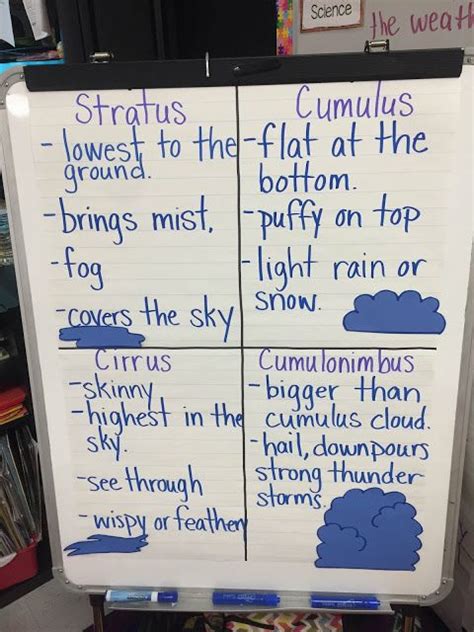 Science
the weath
Stratus
- lowest to the
ground.
- brings mist,
- fog
- covers the sky
Cumulus
- flat at the
bottom.
- puffy on top
- light rain or
snow.
Cirrus
- skinny
- highest in the
sky.
- see through
- wispy or feathery
Cumulonimbus
- bigger than
cumulus cloud.
- hail, downpours
strong thunder
storms.